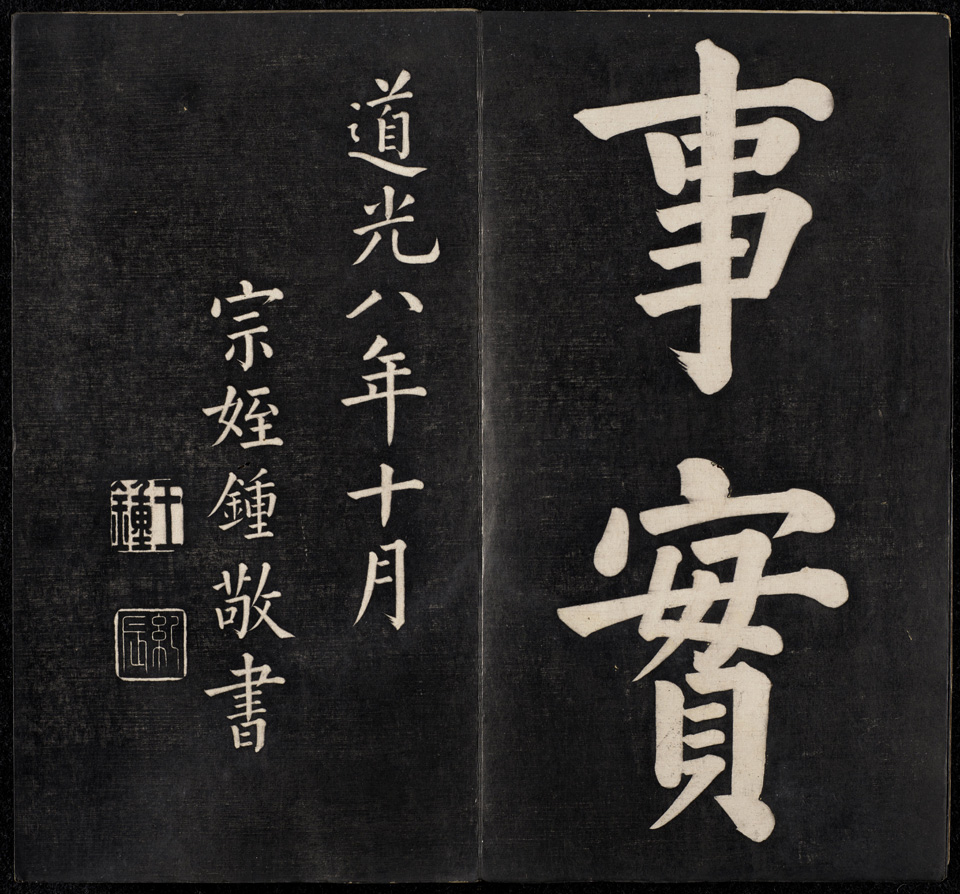 事實
道光八年十月
宗姪鍾敬書